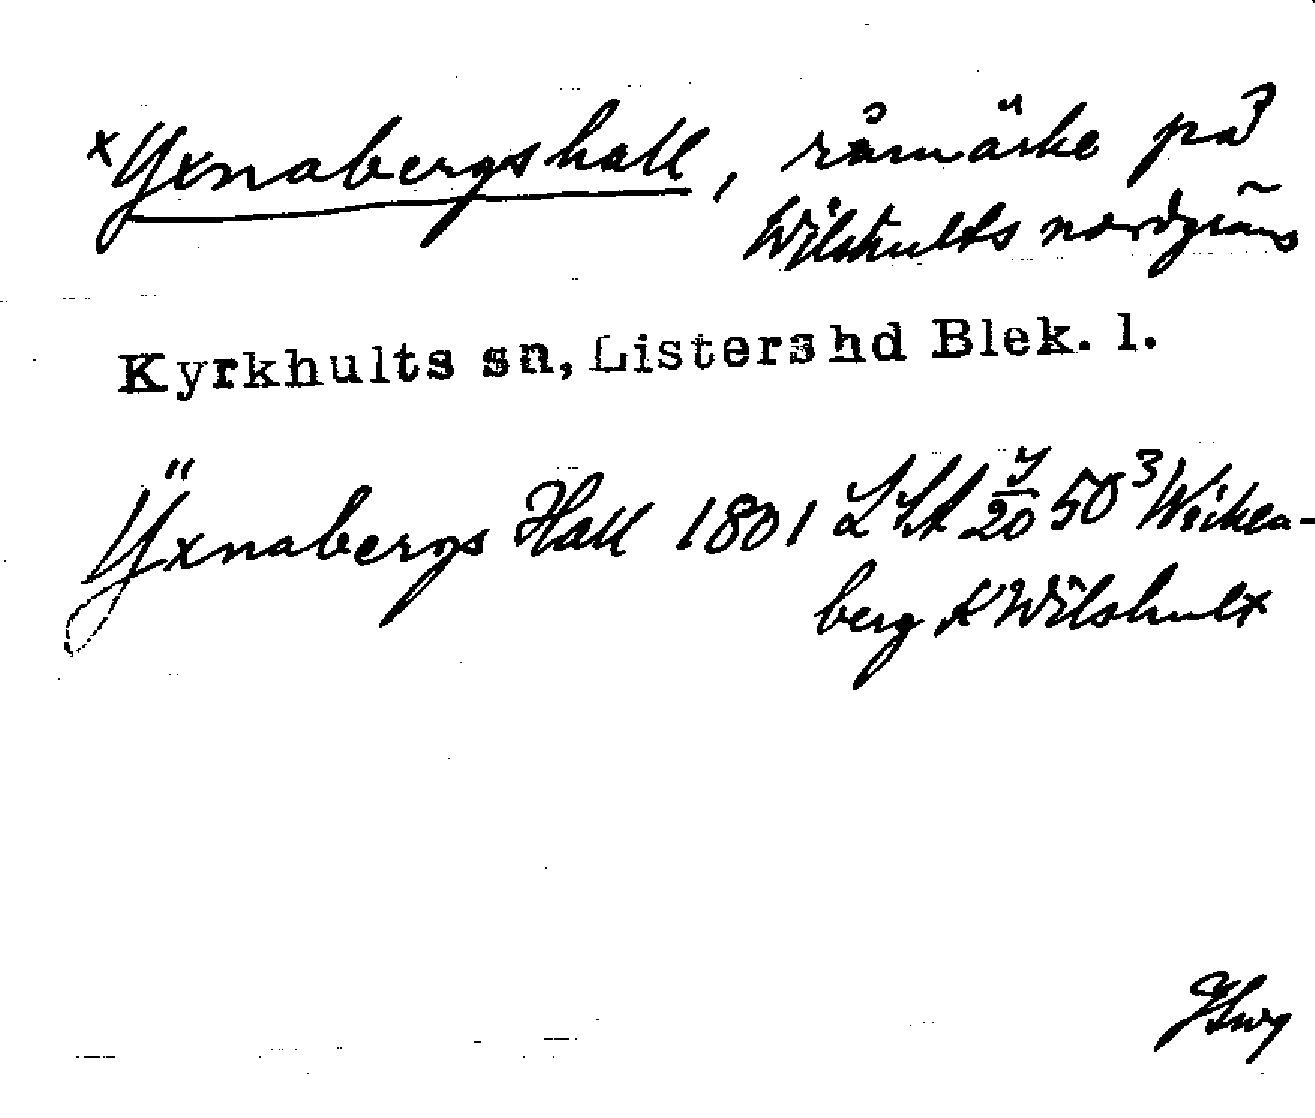 x Yxnabergshall, råmärke på
Wilshults nordgräns
Kyrkhults sn, Listers hd Blek. l.
Ÿxnabergs Hall 1801 LSA 7/20 50³ Wicken-
berg K Wilshult